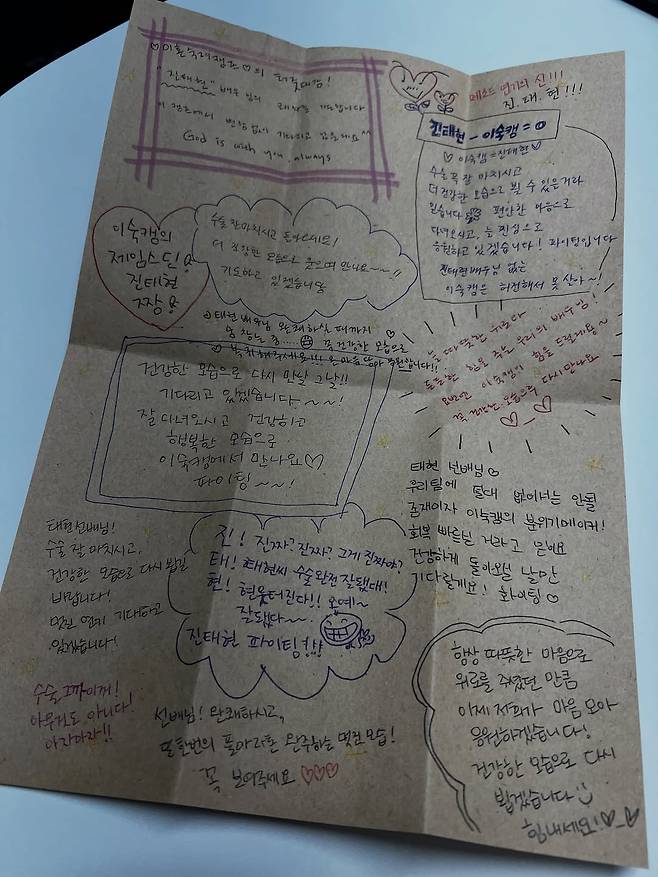 ♡이혼숙려캠프♡의
"진태현" 배우님의
God is with you, always
메소드 연기의 신!!!
진.태.현!!!
진태현-이숙캠=0
♡ 이숙캠=진태현 ♡
수술 꼭 잘 마치시고
더 건강한 모습으로 뵐 수 있을거라
믿습니다 편안한 마음으로
다녀오시고, 늘 진심으로
응원하고 있겠습니다! 파이팅입니다
진태현배우님 없는
이숙캠은 허전해서 못 산아~!
이숙캠의
제임스딘!
진태현
짱
수술 잘마치시고 돌아오세요!
더 건강한 모습으로 웃으며 만나요~~!!
기도하고 있겠습니당
태현 배우님 완쾌하실 때까지
꼭 건강한 모습으로
늘 따뜻한 위로와
든든한 힘을 주는 우리의 배우님!
이숙캠이 힘을 드릴게용♡
모습으로 다시 만나요
건강한 모습으로 다시 만날 그날!!
기다리고 있겠습니다~~!
잘 다녀오시고 건강하고
행복한 모습으로
이숙캠에서 만나요♡♡
파이팅~~!
태현 선배님♡
우리팀에 절대 없어서는 안될
존재이자 이숙캠의 분위기메이커!
회복 빠르실 거라고 믿어요
건강하게 돌아오실 날만
기다릴게요! 화이팅♡
태현선배님!
수술 잘 마치시고,
건강한 모습으로 다시 뵙길
바랍니다!
멋진 연기 기대하고
있겠습니다!
진! 진짜? 진짜? 그게 진짜야?
태! 태현씨 수술 완전 잘됐대!
현! 현웃터진다!! 오예~
잘됐다~~.
진태현 파이팅!!!
수술 그까이꺼!
아무것도 아니다!
아자아자!!
선배님! 완쾌하시고,
또 한번의 풀마라톤 완주하는 멋진 모습!
꼭 보여주세요 ♡♡♡
항상 따뜻한 마음으로
위로를 주셨던 만큼
이제 저희가 마음 모아
응원하겠습니다!
건강한 모습으로 다시
뵙겠습니다
힘내세요!